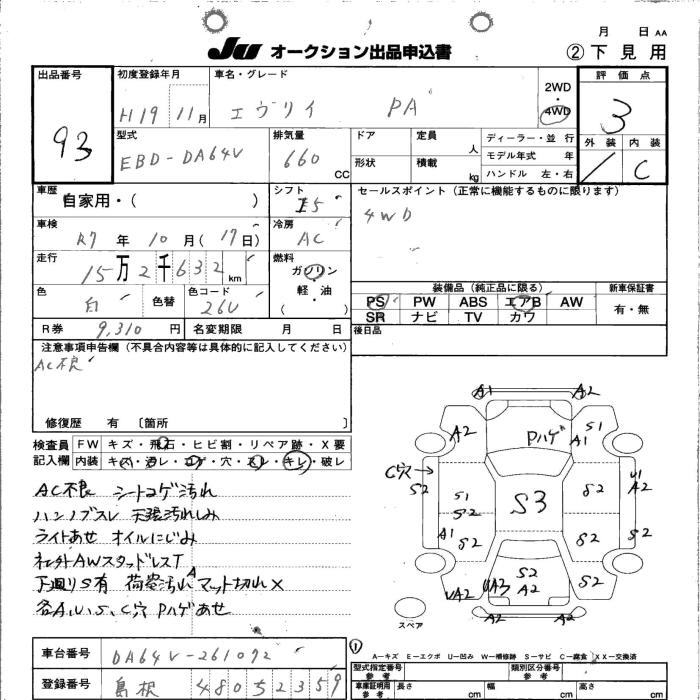 月 日 AA
JU オークション出品申込書 ②下見用
出品番号 初度登録年月 車名・グレード 2WD・4WD 評価点
93 H19 11月 エヴリイ PA 3
型式 排気量 ドア 定員 人 ディーラー・並行 外装 内装
EBD-DA64V 660 CC 形状 積載 kg モデル年式 年 C
ハンドル 左・右
車歴 自家用・( ) シフト I5 セールスポイント(正常に機能するものに限ります)
4WD
車検 R7年10月(17日) 冷房 AC
走行 15万2千632km 燃料 ガソリン・軽油
色 白 色替 色コード 26U
装備品(純正品に限る) 新車保証書
PS PW ABS エアB AW 有・無
SR ナビ TV カワ
R券 9,310円 名変期限 月 日 後日品
注意事項申告欄(不具合内容等は具体的に記入してください)
AC不良
修復歴 有 〔箇所 〕
検査員記入欄 FW キズ・飛石・ヒビ割・リペア跡・X要
内装 キズ・汚レ・コゲ・穴・スレ・キレ・破レ
AC不良 シートコゲ汚れ
ハンドルスレ 天張汚れしみ
ライトあせ オイルにじみ
社外AWスタッドレスT
下廻りS有 荷室汚れA マット切れX
各A.U.S.C穴 Pハゲあせ
A1 A2
A2 Pハゲ A1 S1
C穴 S2 S1 S2 S3 S2 U1 A2
A1 S2 S2 S2
UA2 UA3 S2 A2 S2
A2 A2
スペア
①
A-キズ E-エクボ U-凹み W-補修跡 S-サビ C-腐食 XX-交換済
車台番号 DA64V-261092
登録番号 島根 480 5 2359
型式指定番号 参考 類別区分番号 参考
車庫証明用 参考 長さ cm 幅 cm 高さ cm